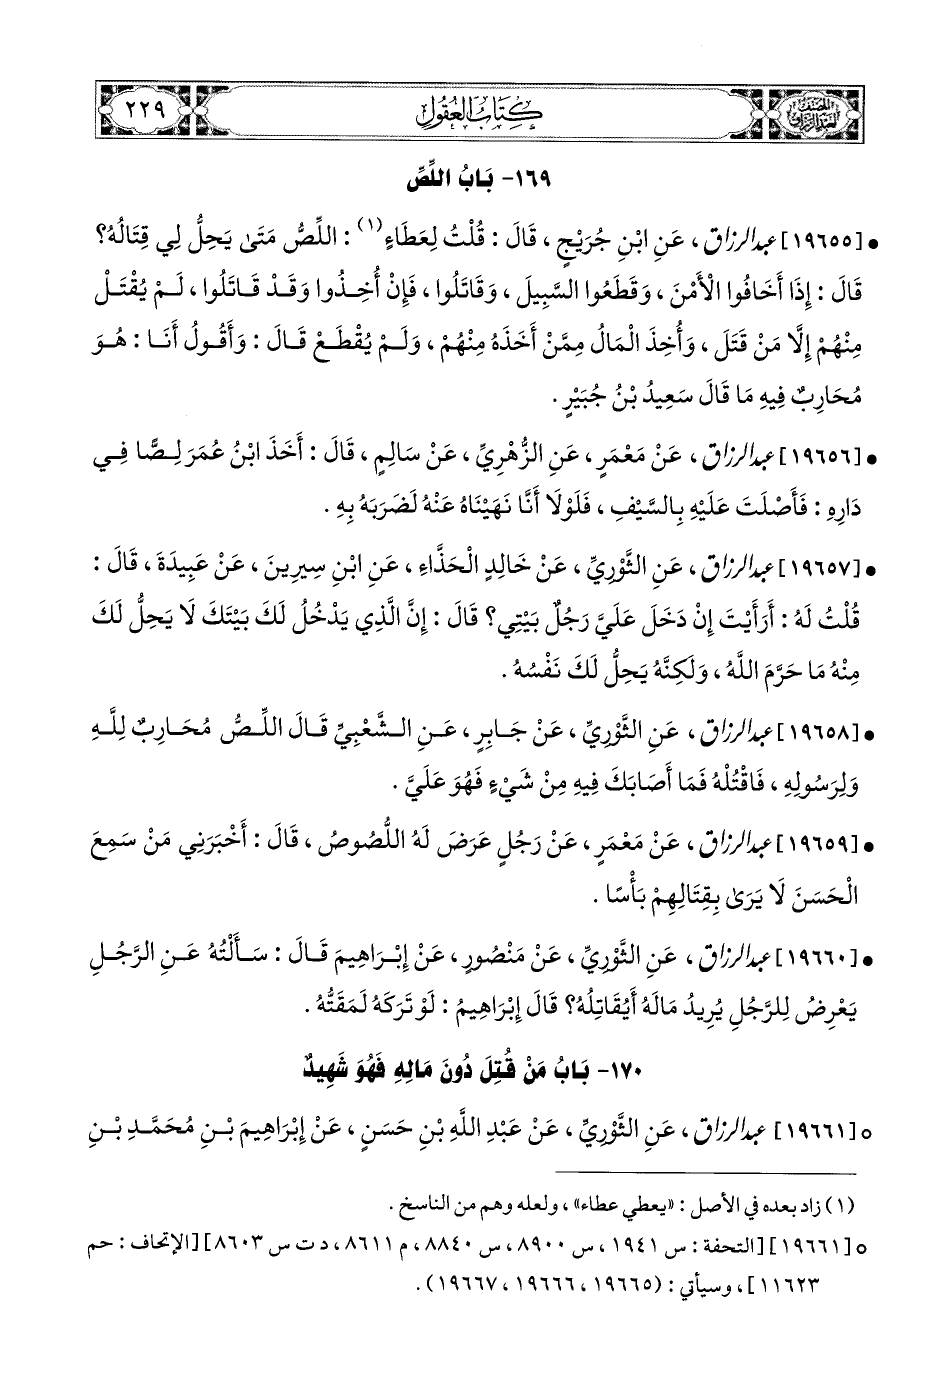 المصنف
لعبد الرزاق
كتاب العقول
٢٢٩
١٦٩- بَابُ اللِّصِّ
• [١٩٦٥٥] عبد الرزاق، عَنِ ابْنِ جُرَيْجٍ، قَالَ: قُلْتُ لِعَطَاءٍ(١): اللِّصُّ مَتَى يَحِلُّ لِي قِتَالُهُ؟
قَالَ: إِذَا أَخَافُوا الْأَمْنَ، وَقَطَعُوا السَّبِيلَ، وَقَاتَلُوا، فَإِنْ أُخِذُوا وَقَدْ قَاتَلُوا، لَمْ يُقْتَلْ
مِنْهُمْ إِلَّا مَنْ قَتَلَ، وَأُخِذَ الْمَالُ مِمَّنْ أَخَذَهُ مِنْهُمْ، وَلَمْ يُقْطَعْ قَالَ: وَأَقُولُ أَنَا: هُوَ
مُحَارِبٌ فِيهِ مَا قَالَ سَعِيدُ بْنُ جُبَيْرٍ.
• [١٩٦٥٦] عبد الرزاق، عَنْ مَعْمَرٍ، عَنِ الزُّهْرِيِّ، عَنْ سَالِمٍ، قَالَ: أَخَذَ ابْنُ عُمَرَ لِصًّا فِي
دَارِهِ: فَأَصْلَتَ عَلَيْهِ بِالسَّيْفِ، فَلَوْلَا أَنَّا نَهَيْنَاهُ عَنْهُ لَضَرَبَهُ بِهِ.
• [١٩٦٥٧] عبد الرزاق، عَنِ الثَّوْرِيِّ، عَنْ خَالِدٍ الْحَذَّاءِ، عَنِ ابْنِ سِيرِينَ، عَنْ عَبِيدَةَ، قَالَ:
قُلْتُ لَهُ: أَرَأَيْتَ إِنْ دَخَلَ عَلَيَّ رَجُلٌ بَيْتِي؟ قَالَ: إِنَّ الَّذِي يَدْخُلُ لَكَ بَيْتَكَ لَا يَحِلُّ لَكَ
مِنْهُ مَا حَرَّمَ اللَّهُ، وَلَكِنَّهُ يَحِلُّ لَكَ نَفْسُهُ.
• [١٩٦٥٨] عبد الرزاق، عَنِ الثَّوْرِيِّ، عَنْ جَابِرٍ، عَنِ الشَّعْبِيِّ قَالَ اللِّصُّ مُحَارِبٌ لِلَّهِ
وَلِرَسُولِهِ، فَاقْتُلْهُ فَمَا أَصَابَكَ فِيهِ مِنْ شَيْءٍ فَهُوَ عَلَيَّ.
• [١٩٦٥٩] عبد الرزاق، عَنْ مَعْمَرٍ، عَنْ رَجُلٍ عَرَضَ لَهُ اللُّصُوصُ، قَالَ: أَخْبَرَنِي مَنْ سَمِعَ
الْحَسَنَ لَا يَرَى بِقِتَالِهِمْ بَأْسًا.
• [١٩٦٦٠] عبد الرزاق، عَنِ الثَّوْرِيِّ، عَنْ مَنْصُورٍ، عَنْ إِبْرَاهِيمَ قَالَ: سَأَلْتُهُ عَنِ الرَّجُلِ
يَعْرِضُ لِلرَّجُلِ يُرِيدُ مَالَهُ أَيُقَاتِلُهُ؟ قَالَ إِبْرَاهِيمُ: لَوْ تَرَكَهُ لَمَقَتُّهُ.
١٧٠- بَابُ مَنْ قُتِلَ دُونَ مَالِهِ فَهُوَ شَهِيدٌ
○ [١٩٦٦١] عبد الرزاق، عَنِ الثَّوْرِيِّ، عَنْ عَبْدِ اللَّهِ بْنِ حَسَنٍ، عَنْ إِبْرَاهِيمَ بْنِ مُحَمَّدِ بْنِ
(١) زاد بعده في الأصل: «يعطي عطاء»، ولعله وهم من الناسخ.
○ [١٩٦٦١] [التحفة: س ١٩٤١، س ٨٩٠٠، س ٨٨٤٠، م ٨٦١١، د ت س ٨٦٠٣] [الإتحاف: حم
١١٦٢٣]، وسيأتي: (١٩٦٦٥، ١٩٦٦٦، ١٩٦٦٧).